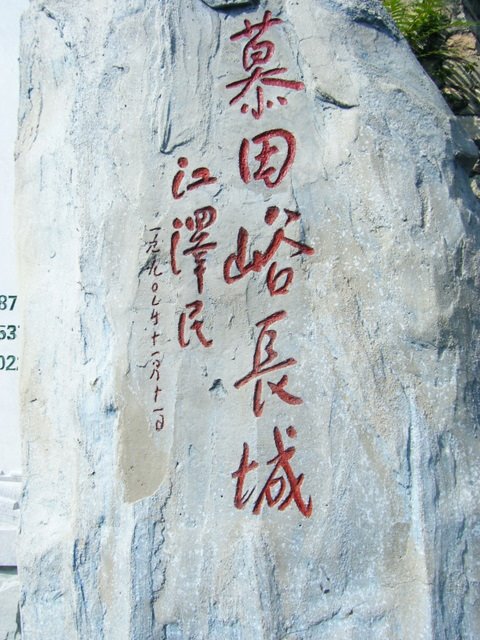 慕田峪長城
江澤民
一九九〇年十一月十一日
87
53
02